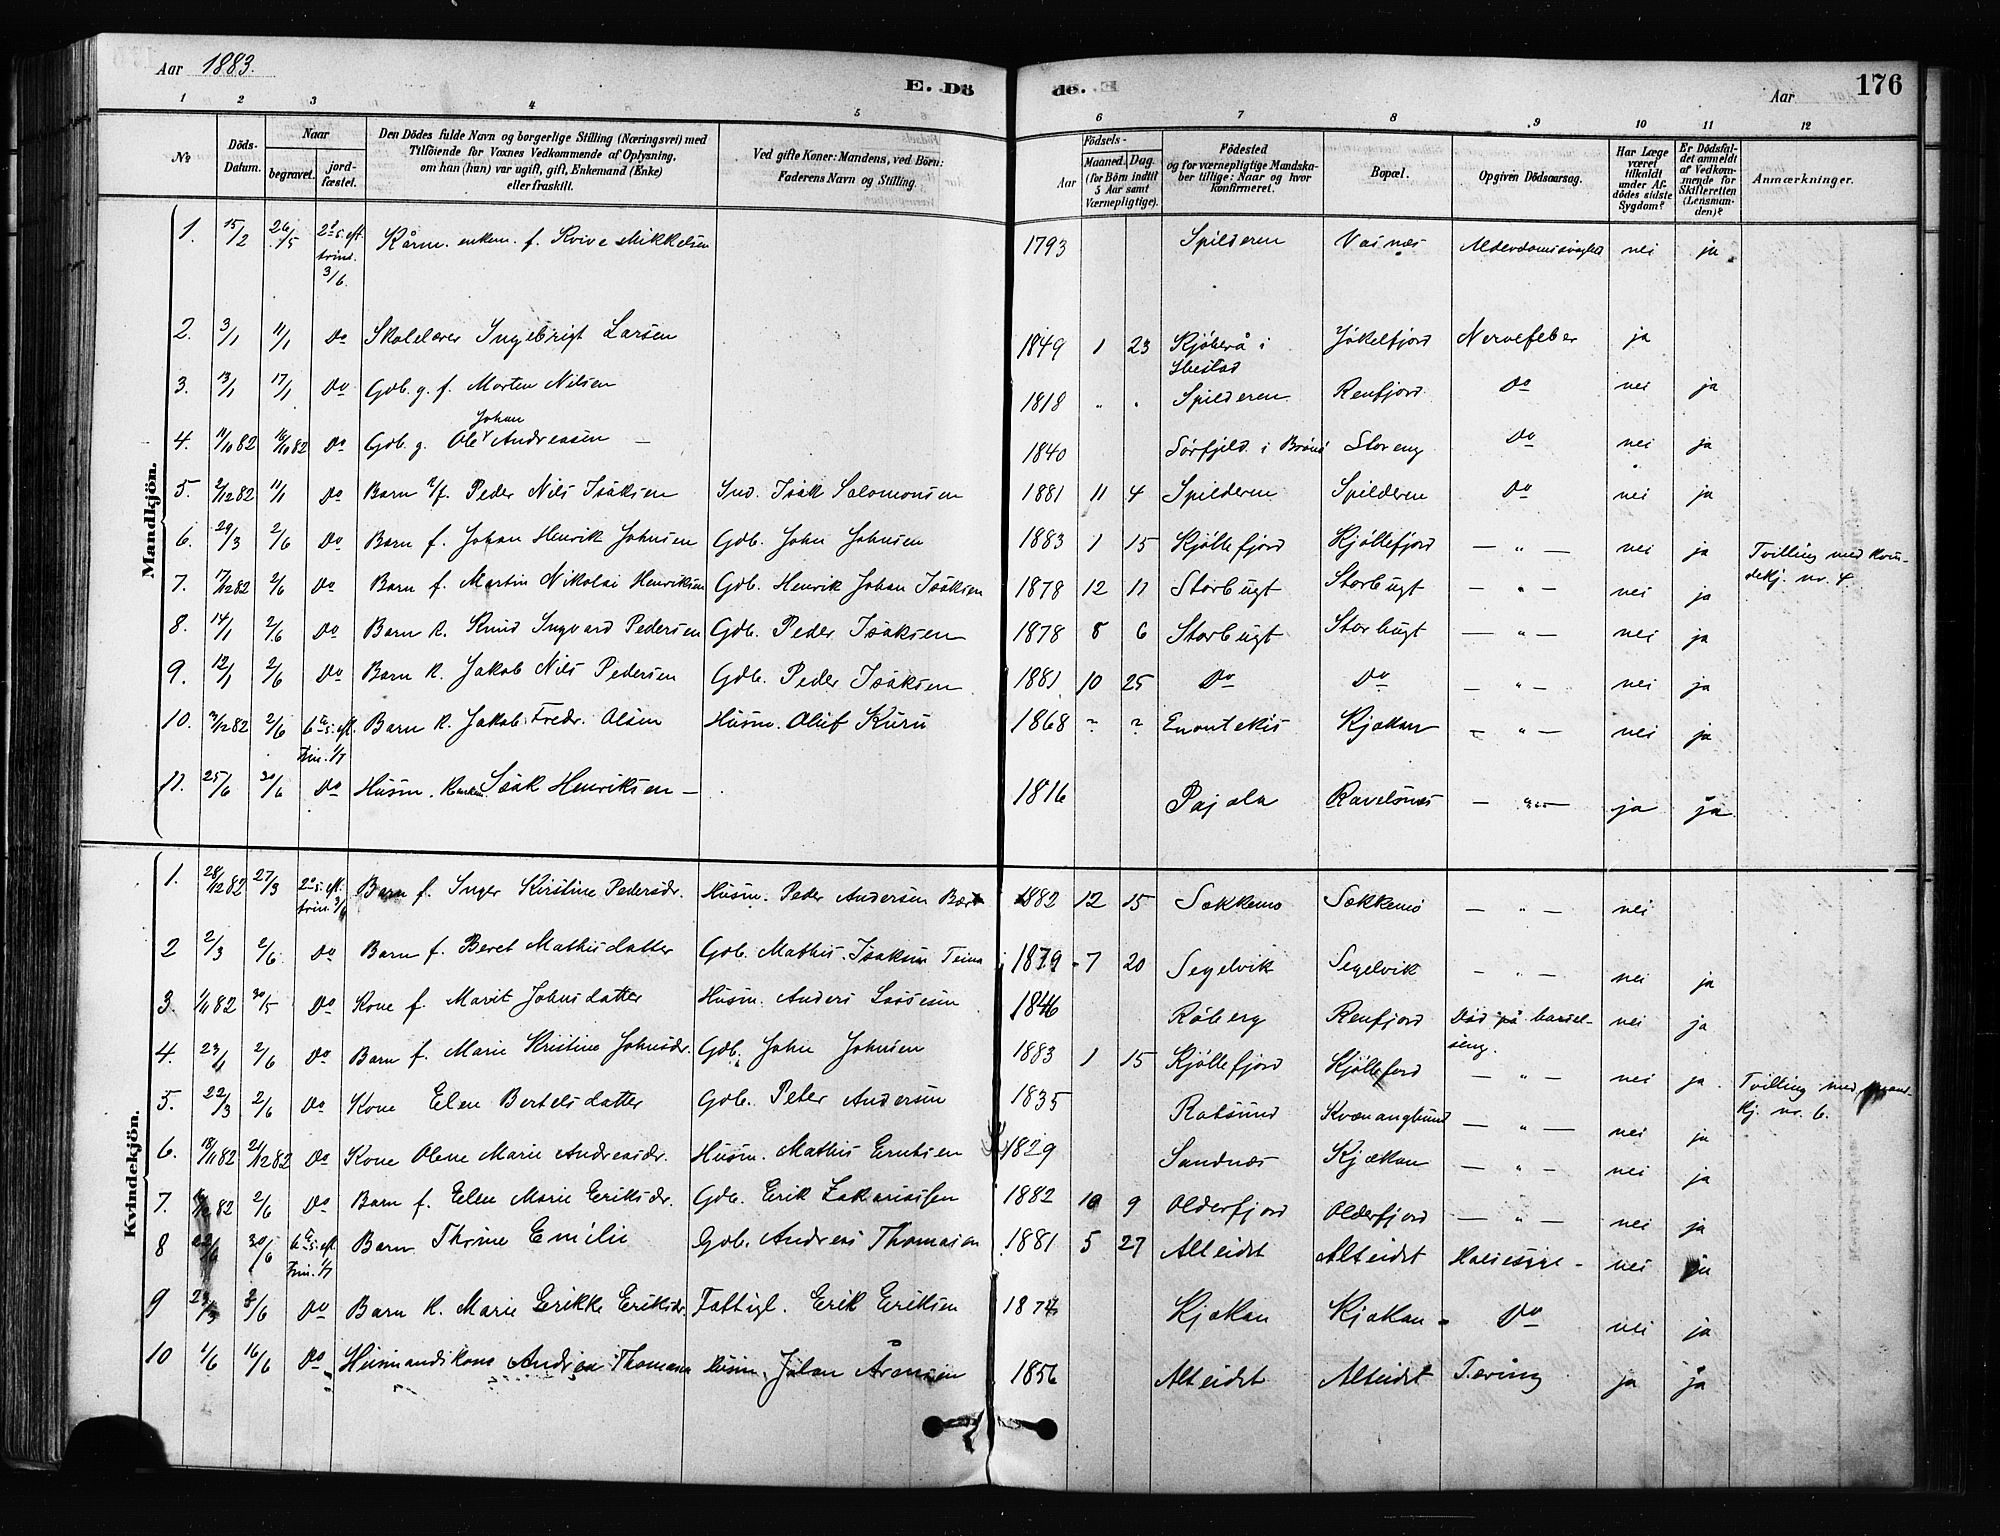 Aar 1883.
E. Dö
de. E.
Aar
176
1 2 3 4 5 6 7 8 9 10 11 12
No
Döds-Datum.
Naar
begravet.
jord-fæstet.
Den Dödes fulde Navn og borgerlige Stilling (Næringsvei) med
Tilföiende for Voxnes Vedkommende af Oplysning,
om han (hun) var ugift, gift, Enkemand (Enke)
eller fraskilt.
Ved gifte Koner: Mandens, ved Börn:
Faderens Navn og Stilling.
Födsels-
Aar
Maaned. Dag.
(for Börn indtil
5 Aar samt
Værnepligtige).
Födested
og for værnepligtige Mandska-
ber tillige: Naar og hvor
konfirmeret.
Bopæl.
Opgiven Dödsaarsag.
Har Læge
været
tilkaldt
under Af-
dödes sidste
Sygdom?
Er Dödsfal-
det anmeldt
af Vedkom-
mende for
Skifteretten
(Lensman-
den)?
Anmærkninger.
Mandkjön.
1. 15/2 26/5 2den s. eft. trinit. 3/6. enkem. f. Mikkelsen 1793 Spilderen Vasnæs Alderdomssvaghed nei ja
2. 3/1 11/1 Do Skolelærer Ingebrigt Larsen 1849 1 23 i Ibestad Jökelfjord Nervefeber ja
3. 13/1 17/1 Do Gdb. g. f. Morten Nilsen 1818 " " Spilderen Renfjord Do nei ja
4. 11/10 82 16/10 82 Do Gdb. g. Ole Johan Andreasen — 1840 Sörfjeld i Brönö Storeng Do nei ja
5. 2/12 82 11/1 Do Barn f. Peder Nils Isaksen Ind. Isak Salomonsen 1881 11 4 Spilderen Spilderen Do nei ja
6. 29/3 2/6 Do Barn f. Johan Henrik Johnsen Gdb. John Johnsen 1883 1 15 Kjöllefjord Kjöllefjord — " — nei ja Tvilling med kvin-dekj. nr. 4.
7. 17/12 82 2/6 Do Barn f. Martin Nikolai Henriksen Gdb. Henrik Johan Isaksen 1878 12 11 Storbugt Storbugt — " — nei ja
8. 14/1 2/6 Do Barn k. Knud Ingvard Pedersen Gdb. Peder Isaksen 1878 8 6 Storbugt Storbugt — " — nei ja
9. 12/1 2/6 Do Barn k. Jakob Nils Pedersen Gdb. Peder Isaksen 1881 10 25 Do Do — " — nei ja
10. 31/12 82 2/6 6te s. eft. Trin. 1/7 Barn k. Jakob Fredr. Olsen Husm. Oluf Kuru 1868 ? ? Enontekis Kjækan — " — nei ja
11. 25/6 30/6 Do Husm. k. enkem. Isak Henriksen — 1816 Pajala Ravelsnæs — " — ja ja
Kvindekjön.
1. 28/12 82 27/3 2den s. eft. trin. 3/6 Barn f. Inger Kirstine Pedersdr. Husm. Peder Andersen 1882 12 15 Sækkemo Sækkemo — " — nei
2 2/3 2/6 Do Barn f. Beret Mathisdatter Gdb. Mathis Isaksen 1879 7 20 Segelvik Segelvik — " — nei ja
3. 1/11 82 30/5 Do Kone f. Marit Johnsdatter Husm. Anders Lassesen 1846 Röberg Renfjord Död på barsel-seng. nei ja
4. 23/1 2/6 Do Barn f. Marie Kristine Johnsdr. Gdb. John Johnsen 1883 1 15 Kjöllefjord Kjöllefjord — " — nei ja Tvilling med mand-kj. nr. 6.
5. 22/3 2/6 Do Kone Elen Bertelsdatter Gdb. Peter Andersen 1835 Rotsund Kvænangbund — " — nei ja
6. 13/11 82 21/12 82 Do Kone Olene Marie Andreasdr. Husm. Mathis Erntsen 1829 Sandnæs Kjækan — " — nei ja
7. 82 2/6 Do Barn f. Elen Marie Eriksdr. Gdb. Erik Zakariassen 1882 10 9 Olderfjord Olderfjord — " — nei ja
8 22/6 30/6 6te s. eft. Trin. 1/7 Barn Thrine Emilie Gdb. Andreas Thomasen 1881 5 27 Alteidet Alteidet Halsesyge nei ja
9 2/6 Do Barn k. Marie Erikke Eriksdr. Fattigl. Erik Eriksen 1874 Kjækan Kjækan Do nei ja
10 1/6 16/6 Do Husmandskone Andrea Husm. Johan Aronsen 1856 Alteidet Alteidet Tæring ja ja